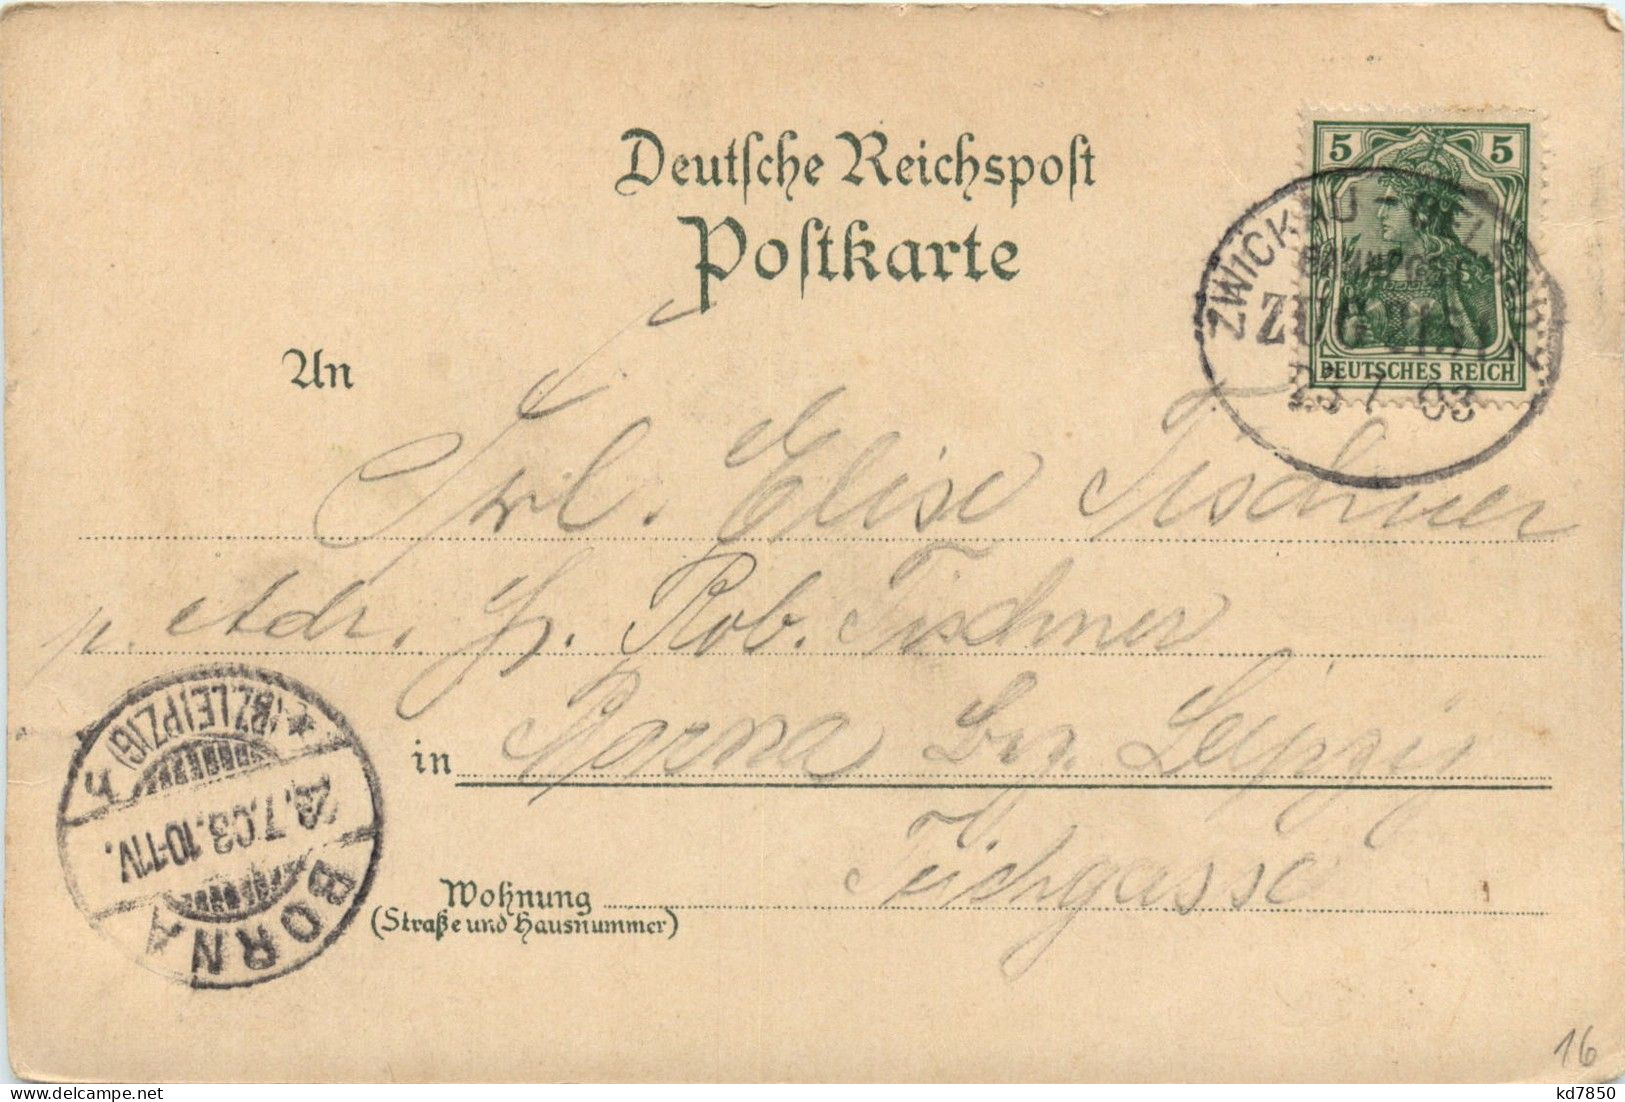 Deutsche Reichspost
Postkarte
5 5
DEUTSCHES REICH
ZWICKAU -
BAHNPOST
ZUG
23 7 03
An
Frl. Elise Tischner
p. Adr. H. Rob. Tischner
in Borna Bez. Leipzig
Teichgasse
Wohnung
(Straße und Hausnummer)
BORNA
.7.03.10-11V.
*(BZ.LEIPZIG) h
16
delcampe.net
kd7850